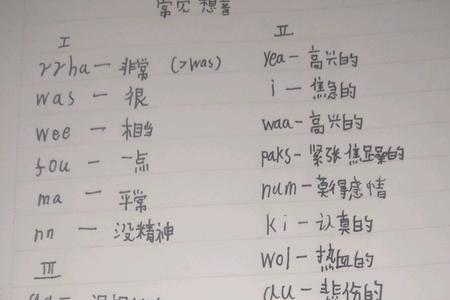 常见想音
I
rrha — 非常 (>was)
was — 很
wee — 相当
fou — 一点
ma — 平常
nn — 没精神
III
II
yea — 高兴的
i — 焦急的
waa — 高兴的
paks — 紧张焦躁的
num — 莫得感情
ki — 认真的
wol — 热血的
au — 悲伤的